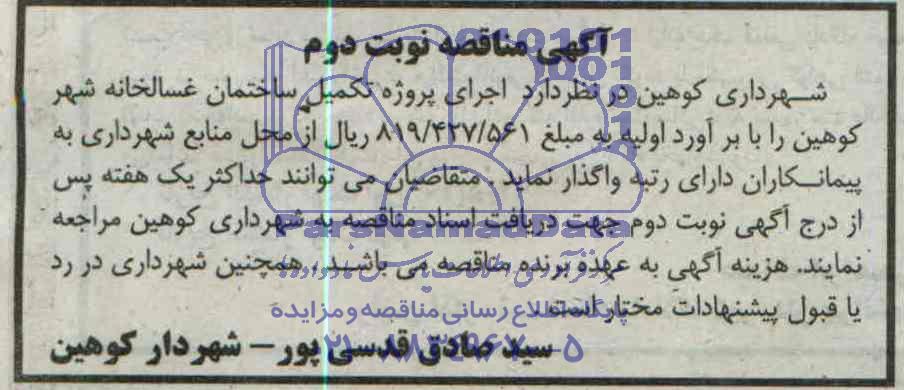 آگهی مناقصه نوبت دوم
شهرداری کوهین در نظردارد اجرای پروژه تکمیل ساختمان غسالخانه شهر
کوهین را با بر آورد اولیه به مبلغ ۸۱۹/۴۲۷/۵۶۱ ریال از محل منابع شهرداری به
پیمانکاران دارای رتبه واگذار نماید . متقاضیان می توانند حداکثر یک هفته پس
از درج آگهی نوبت دوم جهت دریافت اسناد مناقصه به شهرداری کوهین مراجعه
نمایند. هزینه آگهی به عهده برنده مناقصه می باشد . همچنین شهرداری در رد
یا قبول پیشنهادات مختار است .
پایگاه اطلاع رسانی مناقصه و مزایده
سید صادق قدسی پور – شهردار کوهین